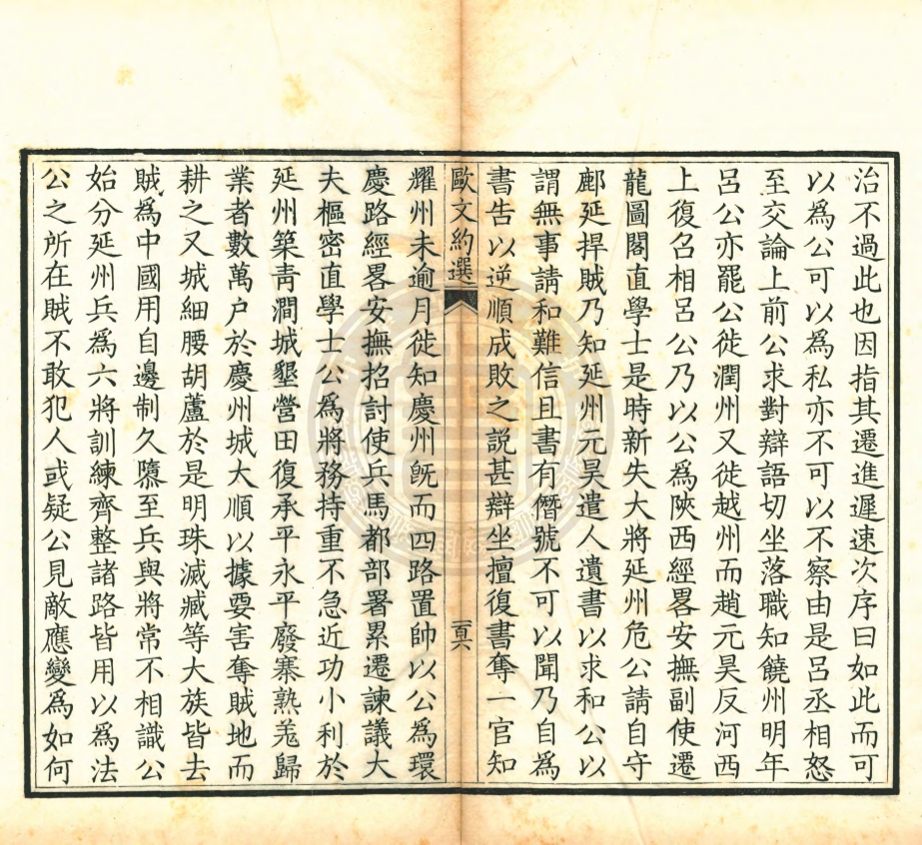 治不過此也因指其遷進遲速次序曰如此而可
以爲公可以爲私亦不可以不察由是吕丞相怒
至交論上前公求對辯語切坐落職知饒州明年
吕公亦罷公徙潤州又徙越州而趙元昊反河西
上復召相吕公乃以公爲陜西經畧安撫副使遷
龍圖閣直學士是時新失大將延州危公請自守
鄜延捍賊乃知延州元昊遣人遺書以求和公以
謂無事請和難信且書有僭號不可以聞乃自爲
書告以逆順成敗之説甚辯坐擅復書奪一官知
歐文約選
百六
耀州未逾月徙知慶州旣而四路置帥以公爲環
慶路經畧安撫招討使兵馬都部署累遷諫議大
夫樞密直學士公爲將務持重不急近功小利於
延州築青澗城墾營田復承平永平廢寨熟羌歸
業者數萬户於慶州城大順以據要害奪賊地而
耕之又城細腰胡蘆於是明珠滅臧等大族皆去
賊爲中國用自邊制久隳至兵與將常不相識公
始分延州兵爲六將訓練齊整諸路皆用以爲法
公之所在賊不敢犯人或疑公見敵應變爲如何